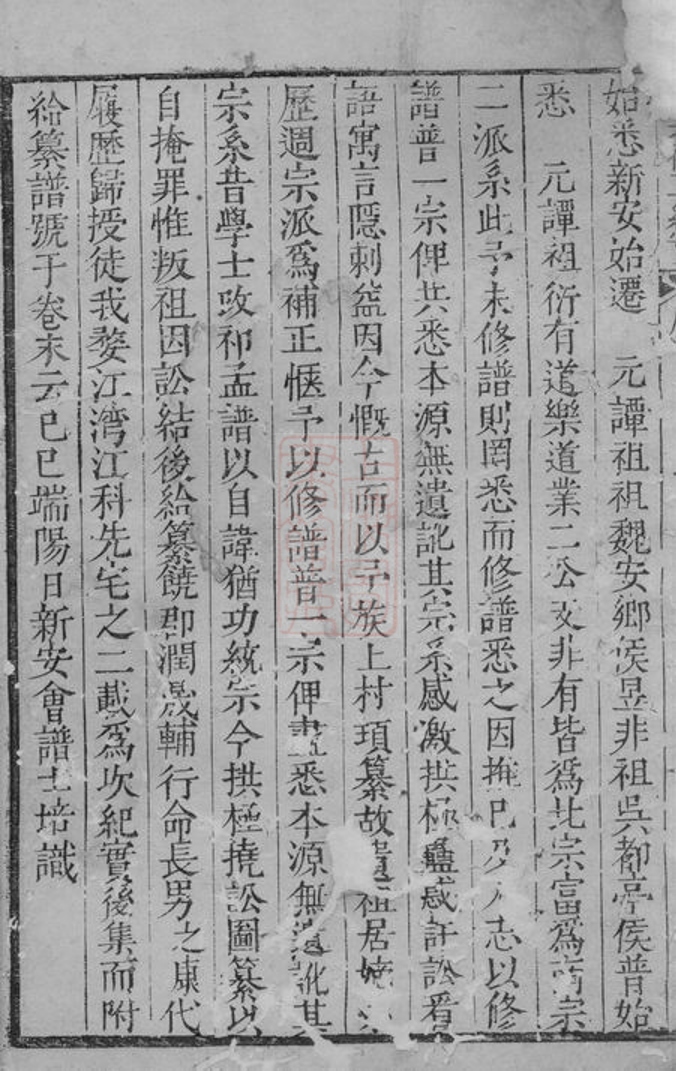 始悉新安始遷 元譚祖祖魏安鄉侯昱非祖吳都亭侯普始
悉 元譚祖衍有道樂道業二公支非有皆為北宗富為南宗
二派系此予未修譜則罔悉而修譜悉之因推已及人志以修
譜普一宗俾共悉本源無遺訛其宗系感激拱極 感訐訟看
語寓言隱刺益因今慨古而以予族上村頊纂故遺祖居嬈
歷週宗派爲補正愜予以修譜普一宗俾盡悉本源無遺訛其
宗系昔學士改祁孟譜以自諱猶功統宗今拱極撓訟圖纂以
自掩罪惟叛祖因訟結後給纂饒郡潤晟輔行命長男之康代
履歷歸授徒我婺江湾江科先宅之二載爲次紀實後集而附
給纂譜號于卷末云己巳端陽日新安會譜士培識